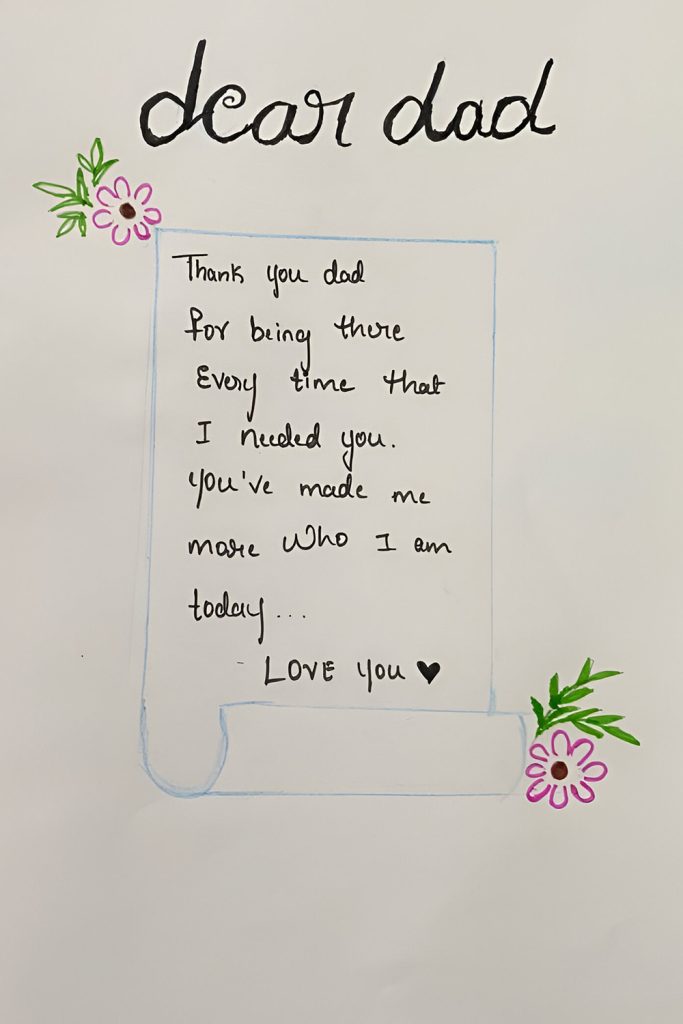 dear dad
Thank you dad
for being there
Every time that
I needed you.
you've made me
more who I am
today...
- LOVE you ♥